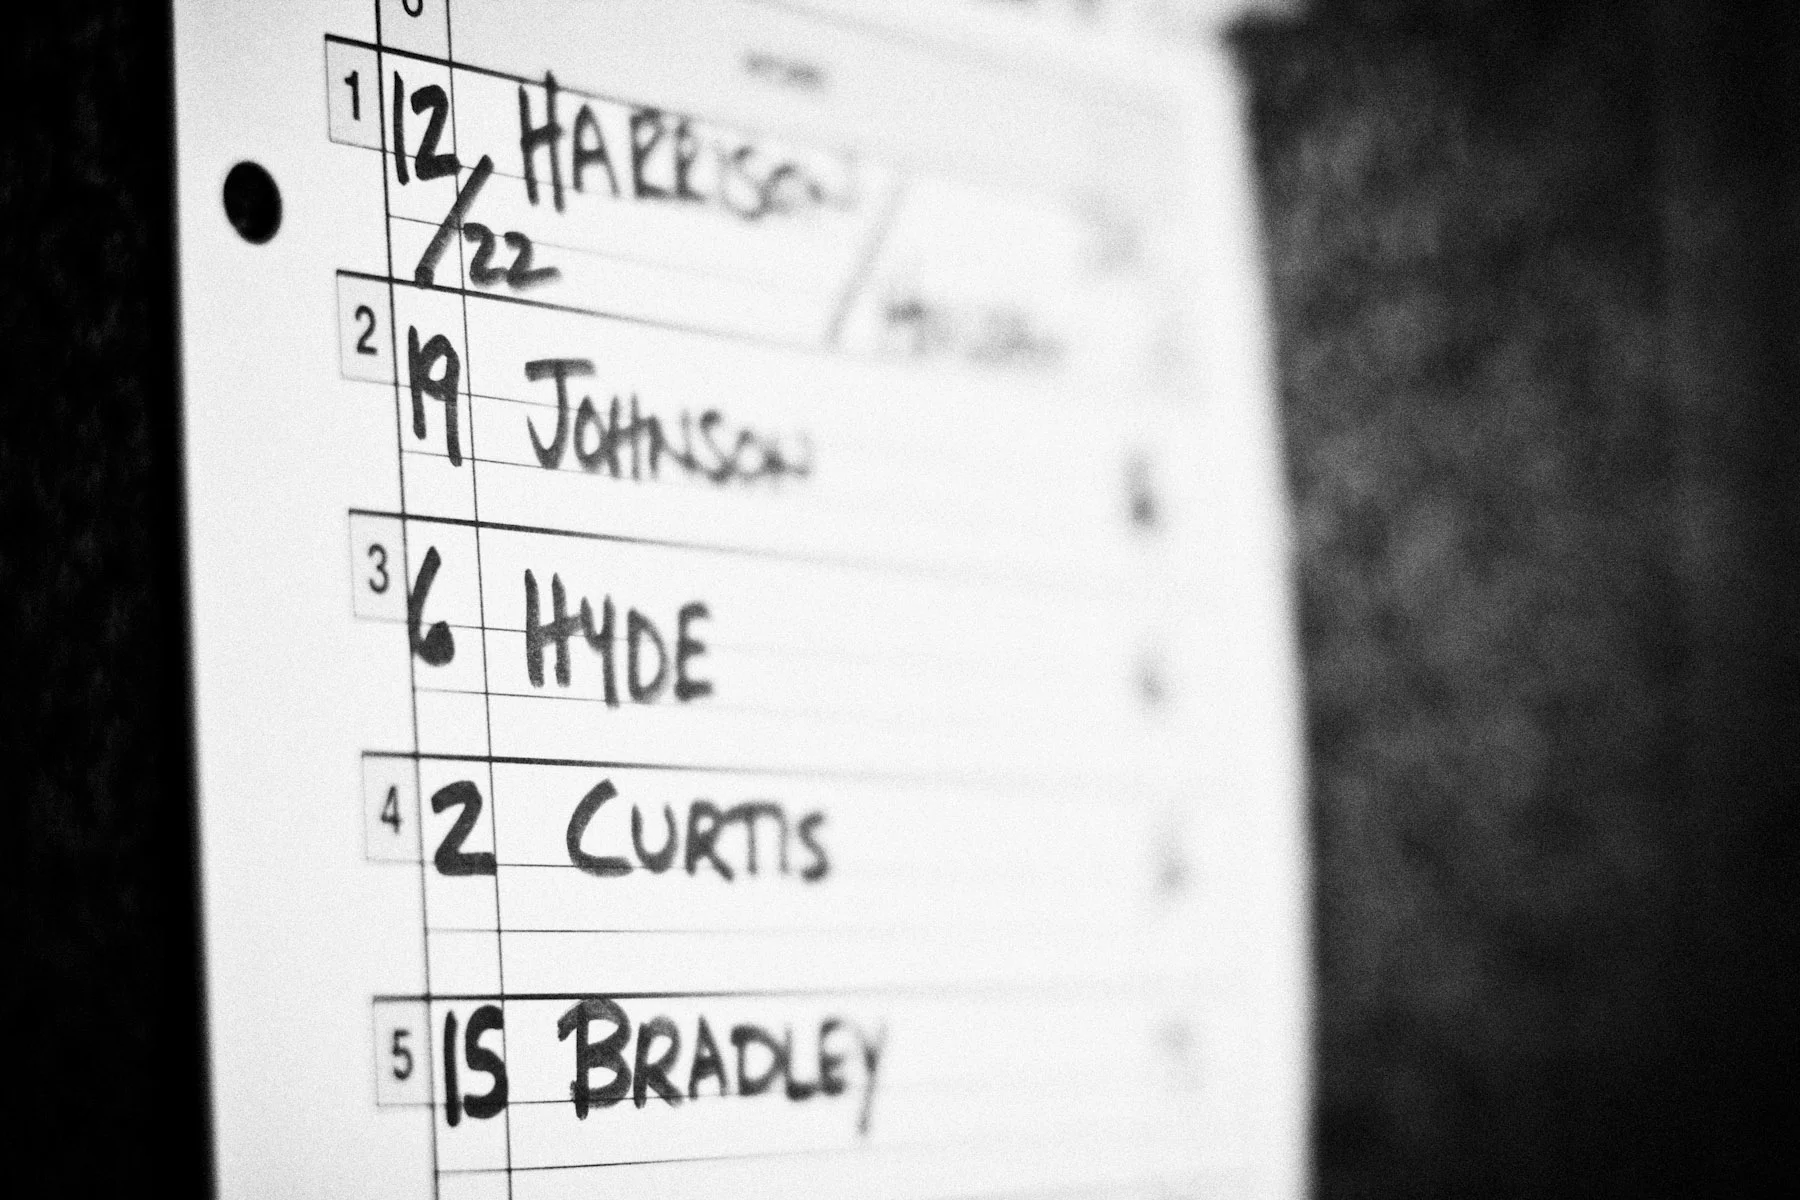 1 12 HARRISON /
/22
2 19 JOHNSON
3 6 HYDE
4 2 CURTIS
5 15 BRADLEY